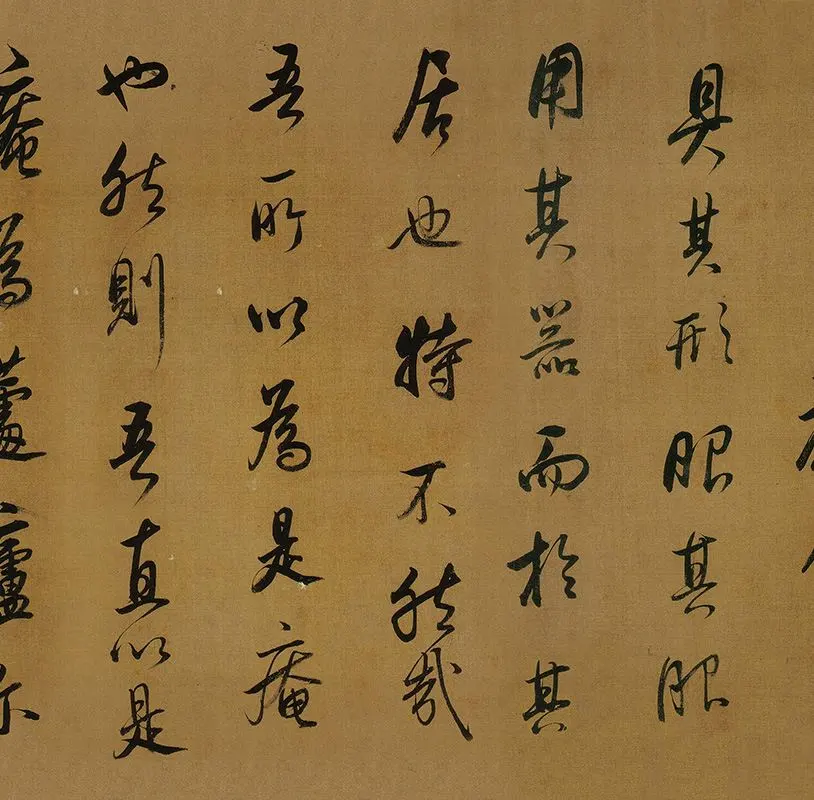 具其形服其服
用其器而於其
居也特不然哉
吾所以為是庵
也然則吾直以是
庵為蘧廬尔